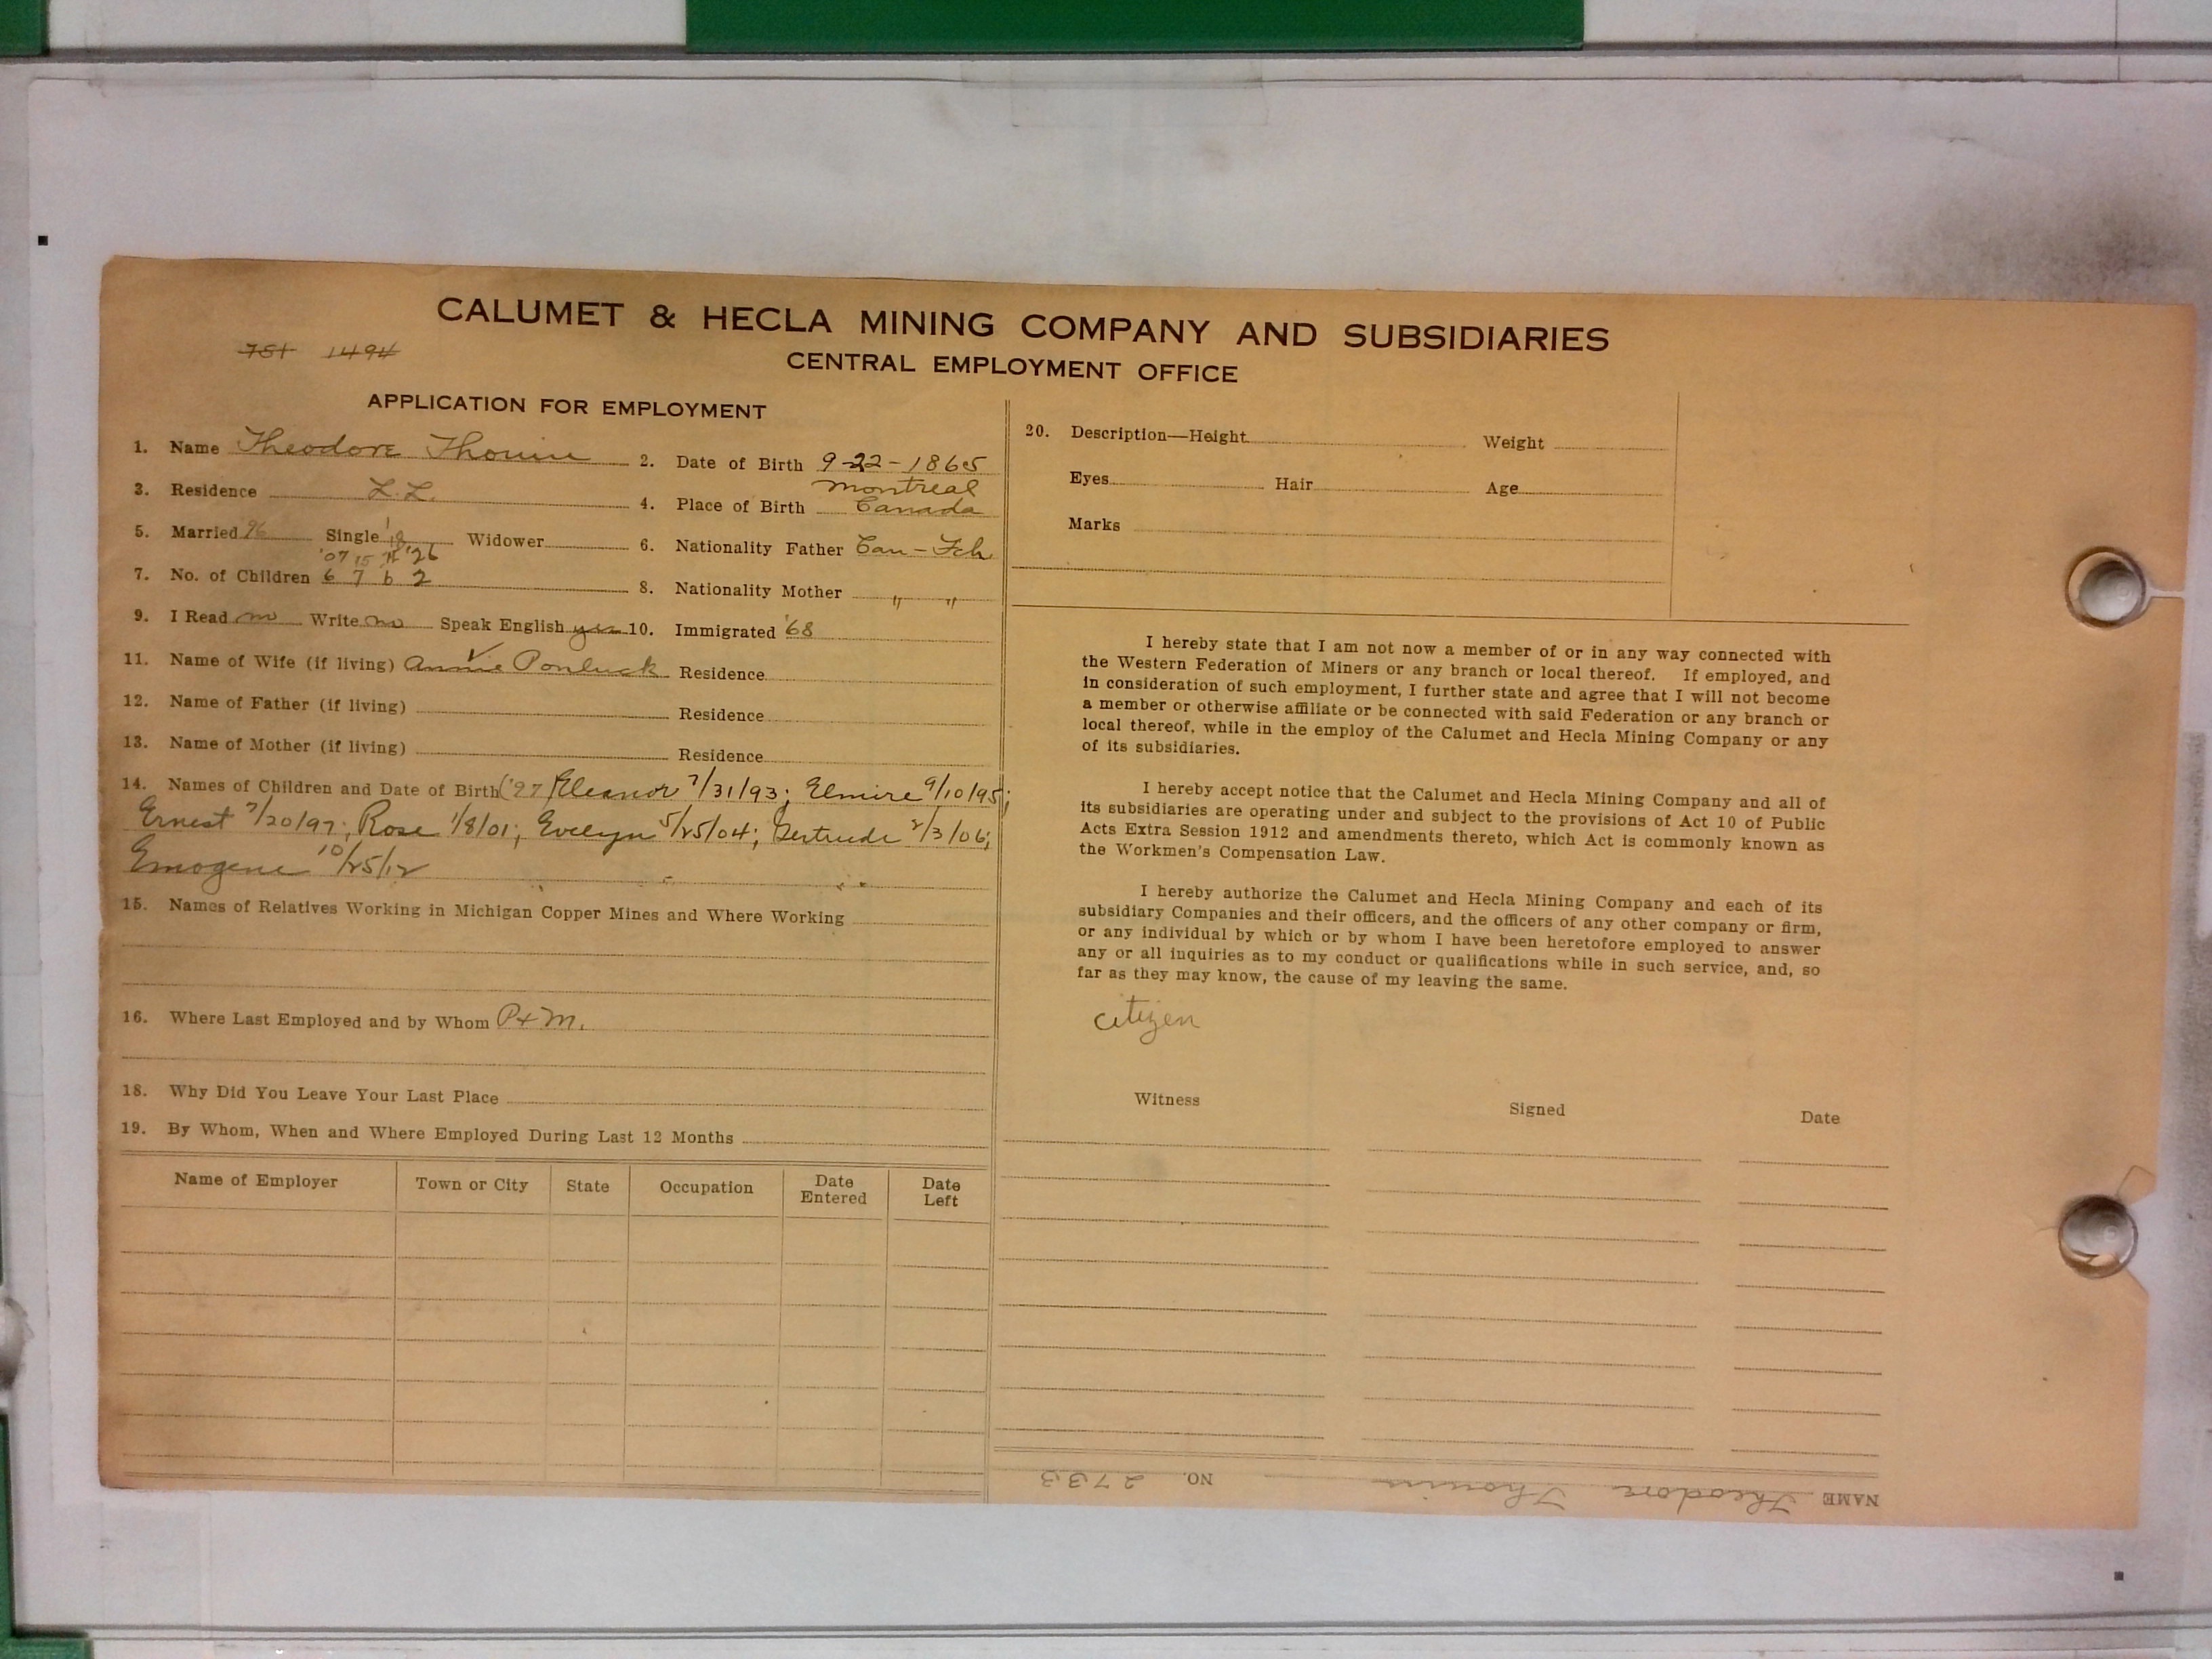 CALUMET & HECLA MINING COMPANY AND SUBSIDIARIES
751 1494
CENTRAL EMPLOYMENT OFFICE
APPLICATION FOR EMPLOYMENT
1. Name Theodore Thouin 2. Date of Birth 9-22-1865
3. Residence L.L. 4. Place of Birth Montreal Canada
5. Married 96 Single Widower 6. Nationality Father Can-Fch
'07 15 '26
7. No. of Children 6 7 6 2 8. Nationality Mother " "
9. I Read no Write no Speak English yes 10. Immigrated '68
11. Name of Wife (if living) Annie Residence
12. Name of Father (if living) Residence
13. Name of Mother (if living) Residence
14. Names of Children and Date of Birth ('27) Eleanor 7/31/93; Elmire 9/10/95;
Ernest 7/20/97; Rose 1/8/01; Evelyn 5/25/04; Gertrude 2/3/06;
Emogene 10/25/12
15. Names of Relatives Working in Michigan Copper Mines and Where Working
16. Where Last Employed and by Whom P+M.
18. Why Did You Leave Your Last Place
19. By Whom, When and Where Employed During Last 12 Months
Name of Employer Town or City State Occupation Date Entered Date Left
20. Description—Height Weight
Eyes Hair Age
Marks
I hereby state that I am not now a member of or in any way connected with
the Western Federation of Miners or any branch or local thereof. If employed, and
in consideration of such employment, I further state and agree that I will not become
a member or otherwise affiliate or be connected with said Federation or any branch or
local thereof, while in the employ of the Calumet and Hecla Mining Company or any
of its subsidiaries.
I hereby accept notice that the Calumet and Hecla Mining Company and all of
its subsidiaries are operating under and subject to the provisions of Act 10 of Public
Acts Extra Session 1912 and amendments thereto, which Act is commonly known as
the Workmen's Compensation Law.
I hereby authorize the Calumet and Hecla Mining Company and each of its
subsidiary Companies and their officers, and the officers of any other company or firm,
or any individual by which or by whom I have been heretofore employed to answer
any or all inquiries as to my conduct or qualifications while in such service, and, so
far as they may know, the cause of my leaving the same.
citizen
Witness Signed Date
NAME Theodore Thouin NO. 2733